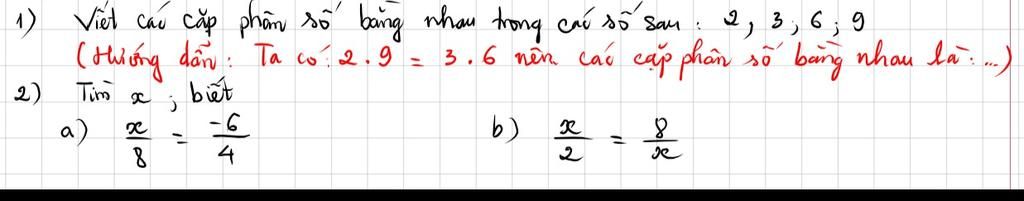 1) Viết các cặp phân số bằng nhau trong các số sau : 2, 3 ; 6 ; 9
(Hướng dẫn : Ta có : 2 . 9 = 3 . 6 nên các cặp phân số bằng nhau là : ...)
2) Tìm x ; biết
a) x/8 = -6/4 b) x/2 = 8/x